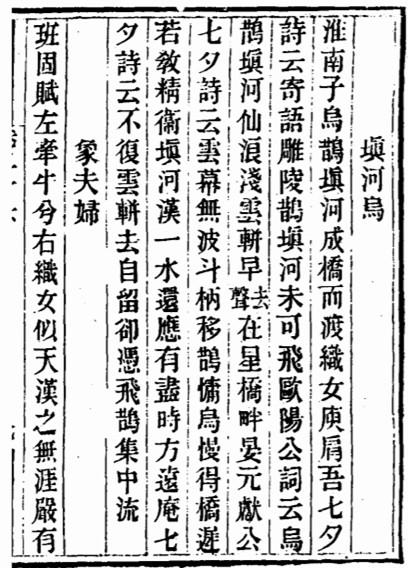 塡河烏
淮南子烏鵲塡河成橋而渡織女庾肩吾七夕
詩云寄語雕陵鵲塡河未可飛歐陽公詞云烏
鵲塡河仙浪淺雲軿早去聲在星橋畔晏元獻公
七夕詩云雲幕無波斗柄移鵲慵烏慢得橋遲
若敎精衞塡河漢一水還應有盡時方遠庵七
夕詩云不復雲軿去自留卻憑飛鵲集中流
象夫婦
班固賦左牽牛兮右織女似天漢之無涯嚴有